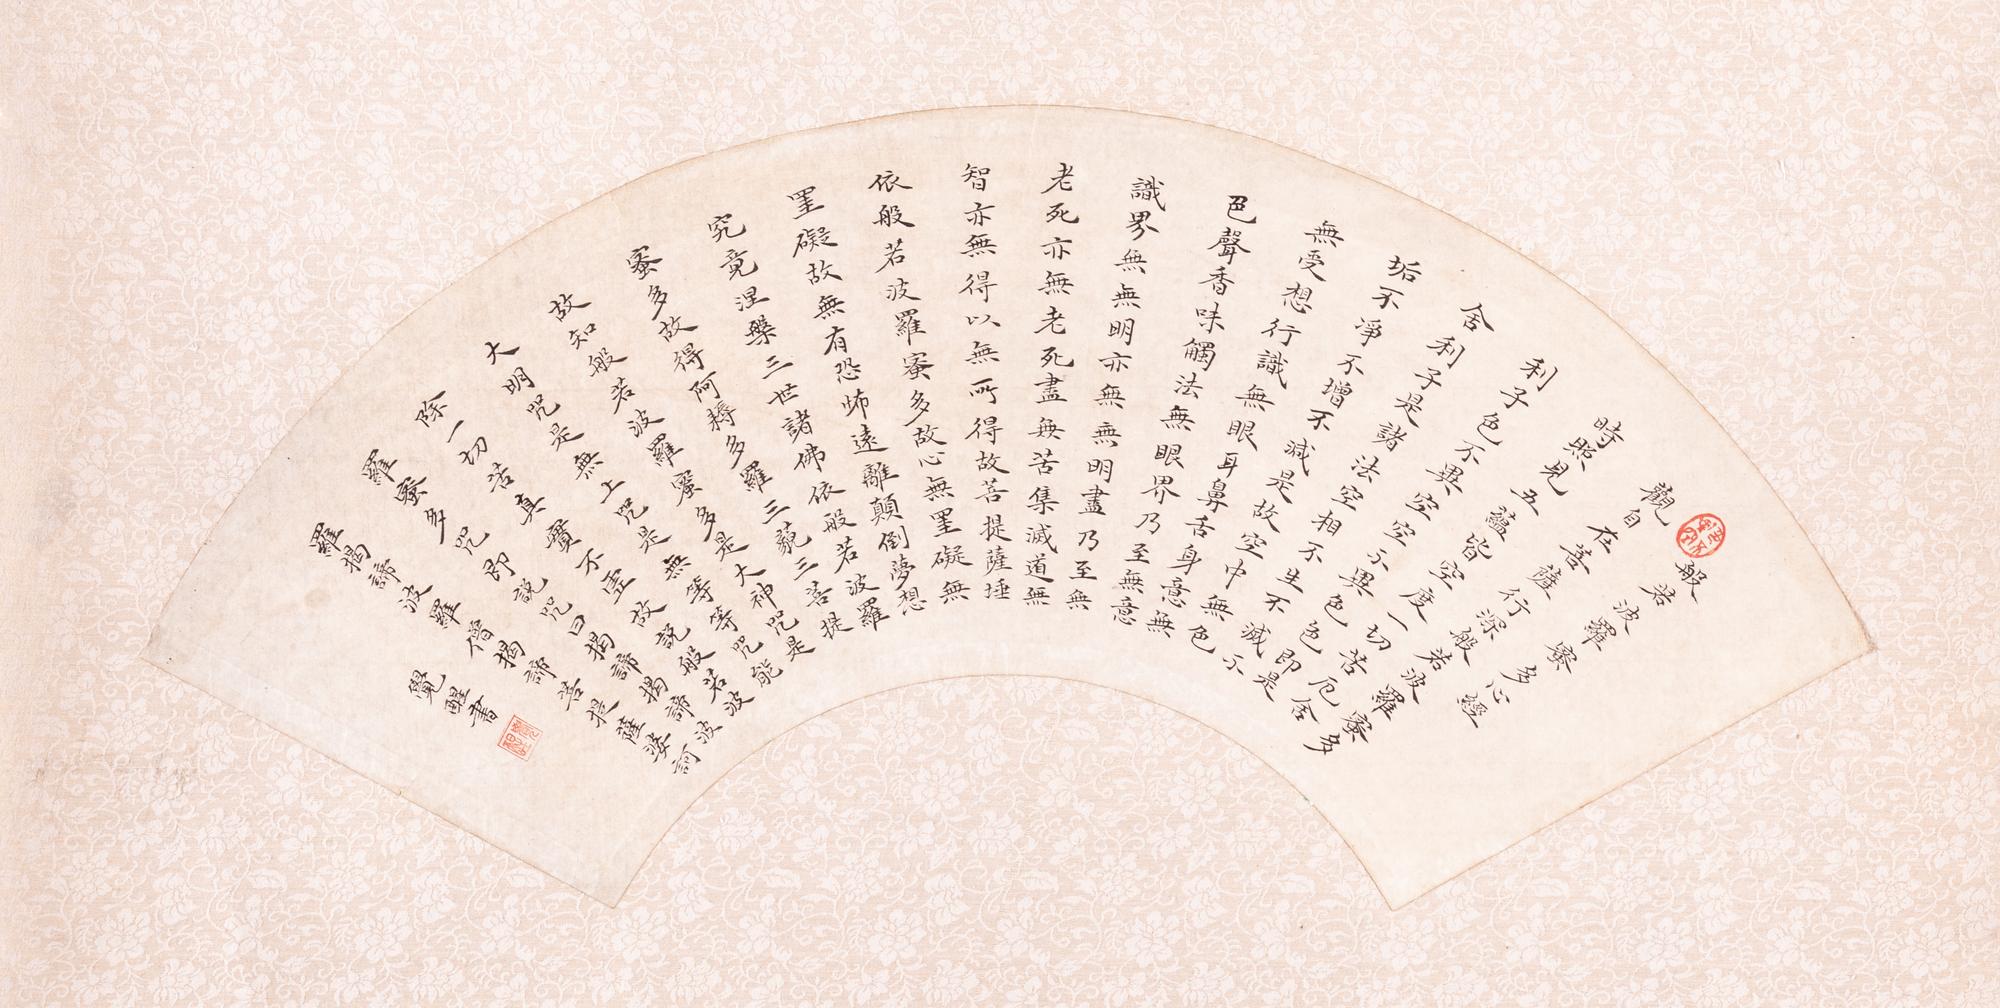 般若波羅蜜多心經
觀自在菩薩行深般若波羅蜜多
時照見五蘊皆空度一切苦厄舍
利子色不異空空不異色色即是
舍利子是諸法空相不生不滅不
垢不淨不增不減是故空中無色
無受想行識無眼耳鼻舌身意無
色聲香味觸法無眼界乃至無意
識界無無明亦無無明盡乃至無
老死亦無老死盡無苦集滅道無
智亦無得以無所得故菩提薩埵
依般若波羅蜜多故心無罣礙無
罣礙故無有恐怖遠離顛倒夢想
究竟涅槃三世諸佛依般若波羅
蜜多故得阿耨多羅三藐三菩提
故知般若波羅蜜多是大神咒是
大明咒是無上咒是無等等咒能
除一切苦真實不虛故說般若波
羅蜜多咒即說咒曰揭諦揭諦波
羅揭諦波羅僧揭諦菩提薩婆訶
覺醒書